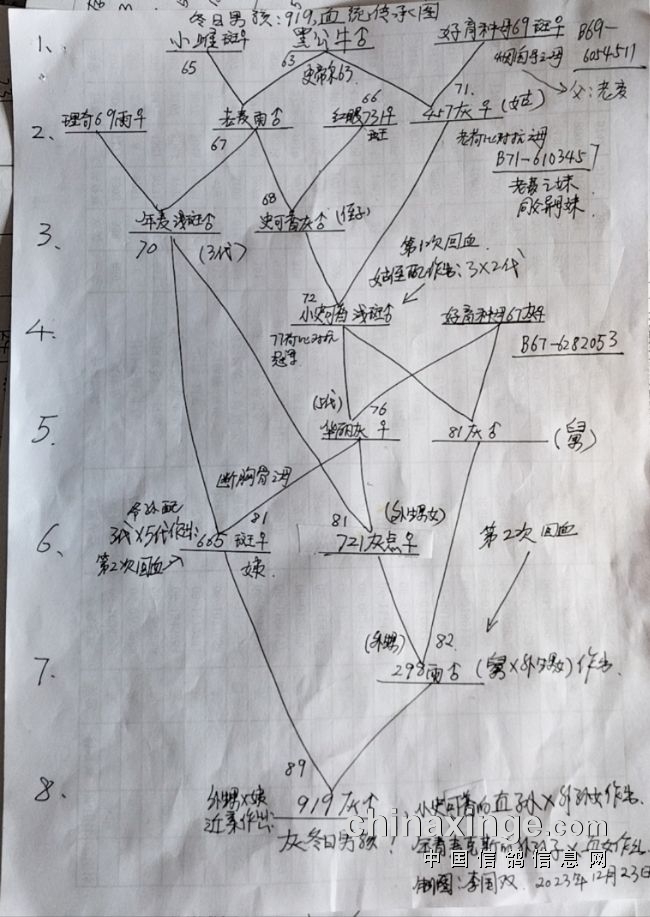 冬日男孩:919,血统传承图
1、 小雌斑♀ 黑公牛♂ 好育种母69斑♀ B69-6054511
65 63 史帝尔63 烟囱号之母 父:老麦
71.
2、 理奇69雨♀ 老麦雨♂ 66 红眼731♀ 斑 457灰♀ (姑)
67
老荷比对抗之母
B71-6103457
老麦之妹
同父异母妹
68
3、 年麦浅斑♂ 史可普灰♂ (侄子)
70 (3代)
第1次回血
姑侄配作出:3X2代
72
4、 小史可普浅斑♂ 好育种母67灰♀
B67-6282053
(5代) 76
5、 华丽灰♀ 81灰♂ (舅)
断胸骨之母
3代X5代作出:
第2次回血
81 81 (外甥女)
6、 665斑♀ 721灰点♀ 第2次回血
姨
(外甥) 82
7、 298雨♂ (舅X外甥女)作出
89
8、 外甥X姨 919灰♂
近亲作出:
灰冬日男孩!
小史可普的直子孙X外孙女作出
chinaxinge.com
中国信鸽信息网
制图:李国双 2023年12月23日